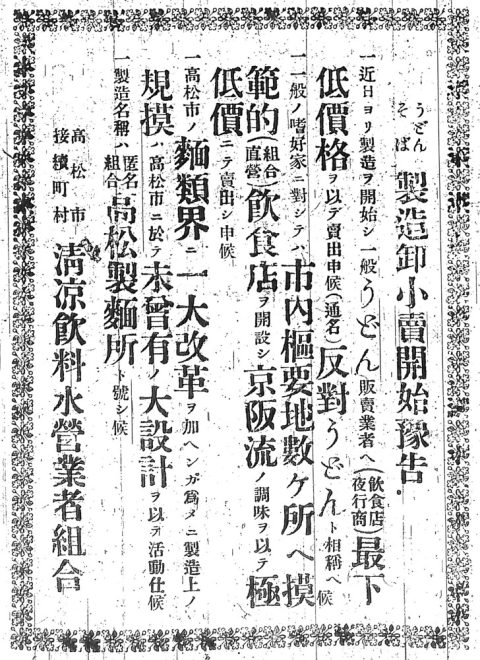 うどん そば 製造卸小賣開始豫告
一近日ヨリ製造ヲ開始シ一般うどん販賣業者ヘ(飲食店 夜行商)最下
低價格ヲ以テ賣出申候(通名)反對うどんト相稱ヘ候
一一般ノ嗜好家ニ對シテハ市內樞要地數ケ所ヘ摸
範的(組合直營)飲食店ヲ開設シ京阪流ノ調味ヲ以テ極
低價ニテ賣出シ申候
一高松市ノ麵類界ニ一大改革ヲ加ヘンガ爲メニ製造上ノ
規摸ハ高松市ニ於テ未曾有ノ大設計ヲ以テ活動仕候
一製造名稱ハ匿名組合高松製麵所ト號シ候
高松市 接續町村 淸凉飲料水營業者組合